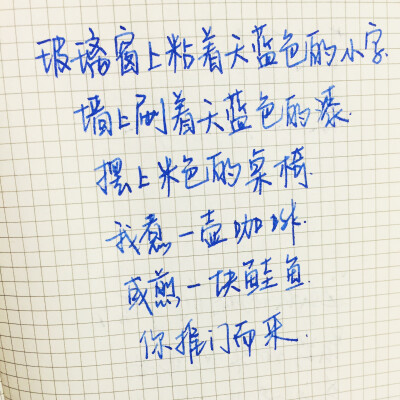 玻璃窗上粘着天蓝色的小字
墙上刷着天蓝色的漆.
摆上米色的桌椅.
我煮一壶咖啡.
或煎一块鲑鱼.
你推门而来.